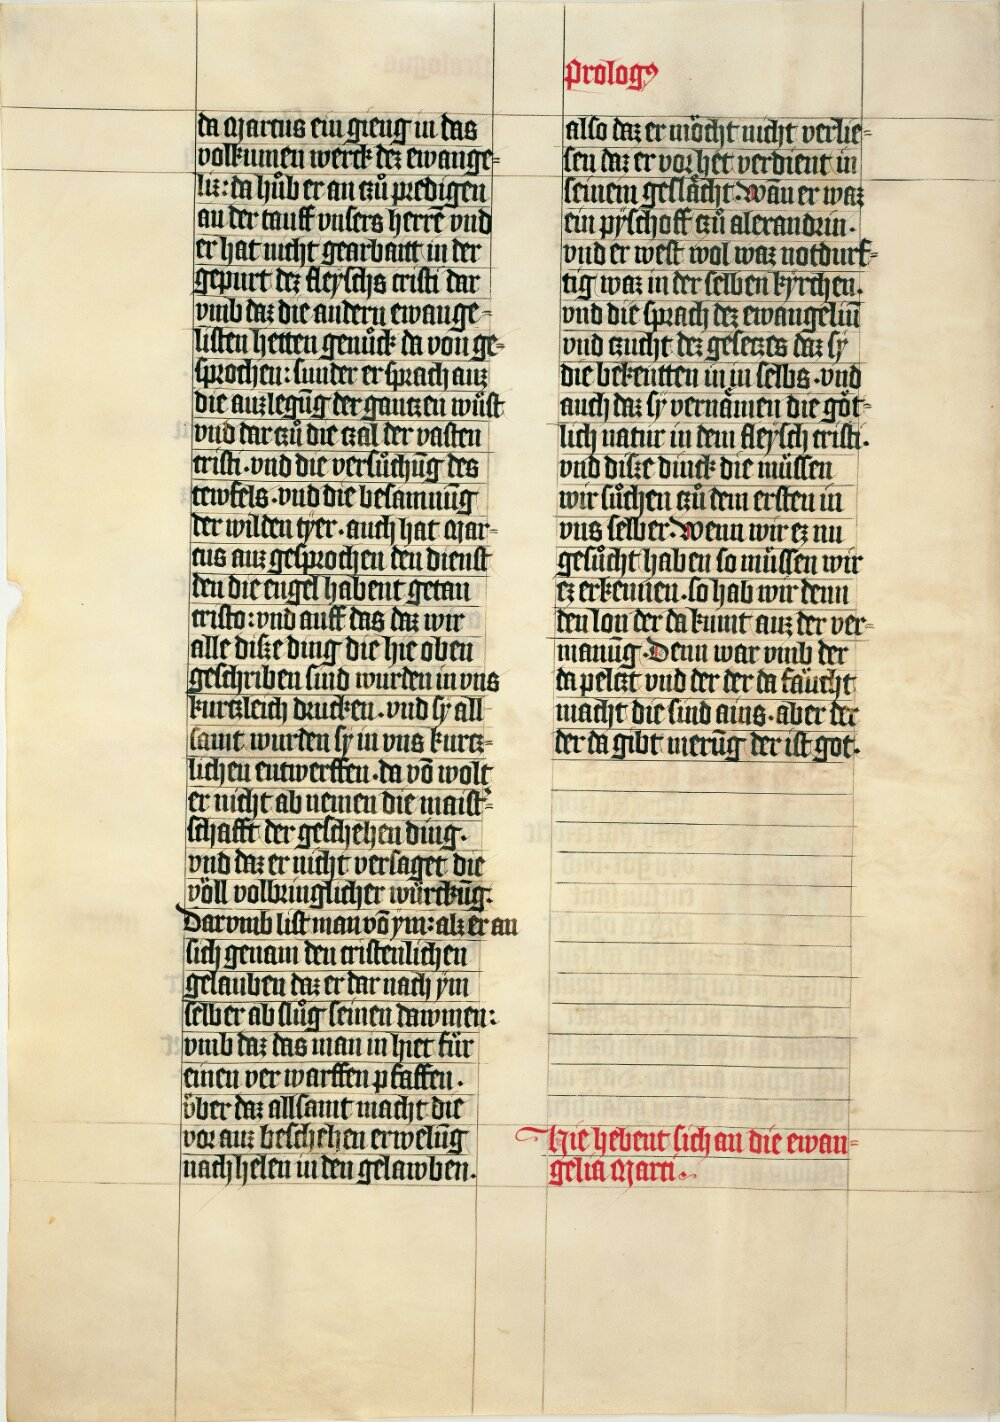 prologꝰ
da Marcus ein gieng in das
volkumen werck dez ewange-
liz: da hůb er an tzů predigen
an der tauff vnsers herrē vnd
er hat nicht gearbaitt in der
gepurt dez fleyschs cristi dar
vmb daz die andern ewange-
listen hetten genůck da von ge-
sprochen: sunder er sprach auz
die auzlegūg der gantzen wůst
vnd dar tzů die tzal der vasten
cristi. vnd die versůchūg des
tewfels. vnd die besamnūg
der wilden tyer. auch hat Mar-
cus auz gesprochen den dienst
den die engel habent getan
cristo: vnd auff das daz wir
alle disze ding die hie oben
geschriben sind wurden in vns
kurtzleich drucken. vnd sy all-
samt wurden sy in vns kurtz-
lichen entwerffen. da vō wolt
er nicht ab nemen die maist-
schafft der geschehen ding.
vnd daz er nicht versaget die
völl volbringlicher würckūg.
Darvmb list man vō ym: alz er an
sich genam den cristenlichen
gelauben daz er dar nach ym
selber ab slůg seinen dawmen:
vmb daz das man in hiet für
einen ver warffen pfaffen.
über daz allsamt macht die
vor auz beschehen erwelūg
nach helen in den gelawben.
also daz er möcht nicht verlie-
sen daz er vor het verdient in
seinem geslächt. Wān er waz
ein pyschoff tzů alexandrin.
vnd er west wol waz notdurf-
tig waz in der selben kyrchen.
vnd die sprach dez ewangeliū
vnd tzucht dez gesetzes daz sy
die bekentten in in selbs. vnd
auch daz sy vernämen die göt-
lich natur in dem fleysch cristi.
vnd disze dinck die müssen
wir sůchen tzů dem ersten in
vns selber. Wenn wir ez nu
gesůcht haben so müssen wir
ez erkennen. so hab wir denn
den lon der da kumt auz der ver-
manūg. Denn war vmb der
da peltzt vnd der der da fäucht
macht die sind ains. aber der
der da gibt merūg der ist got.
Hie hebent sich an die ewan-
gelia Marci.